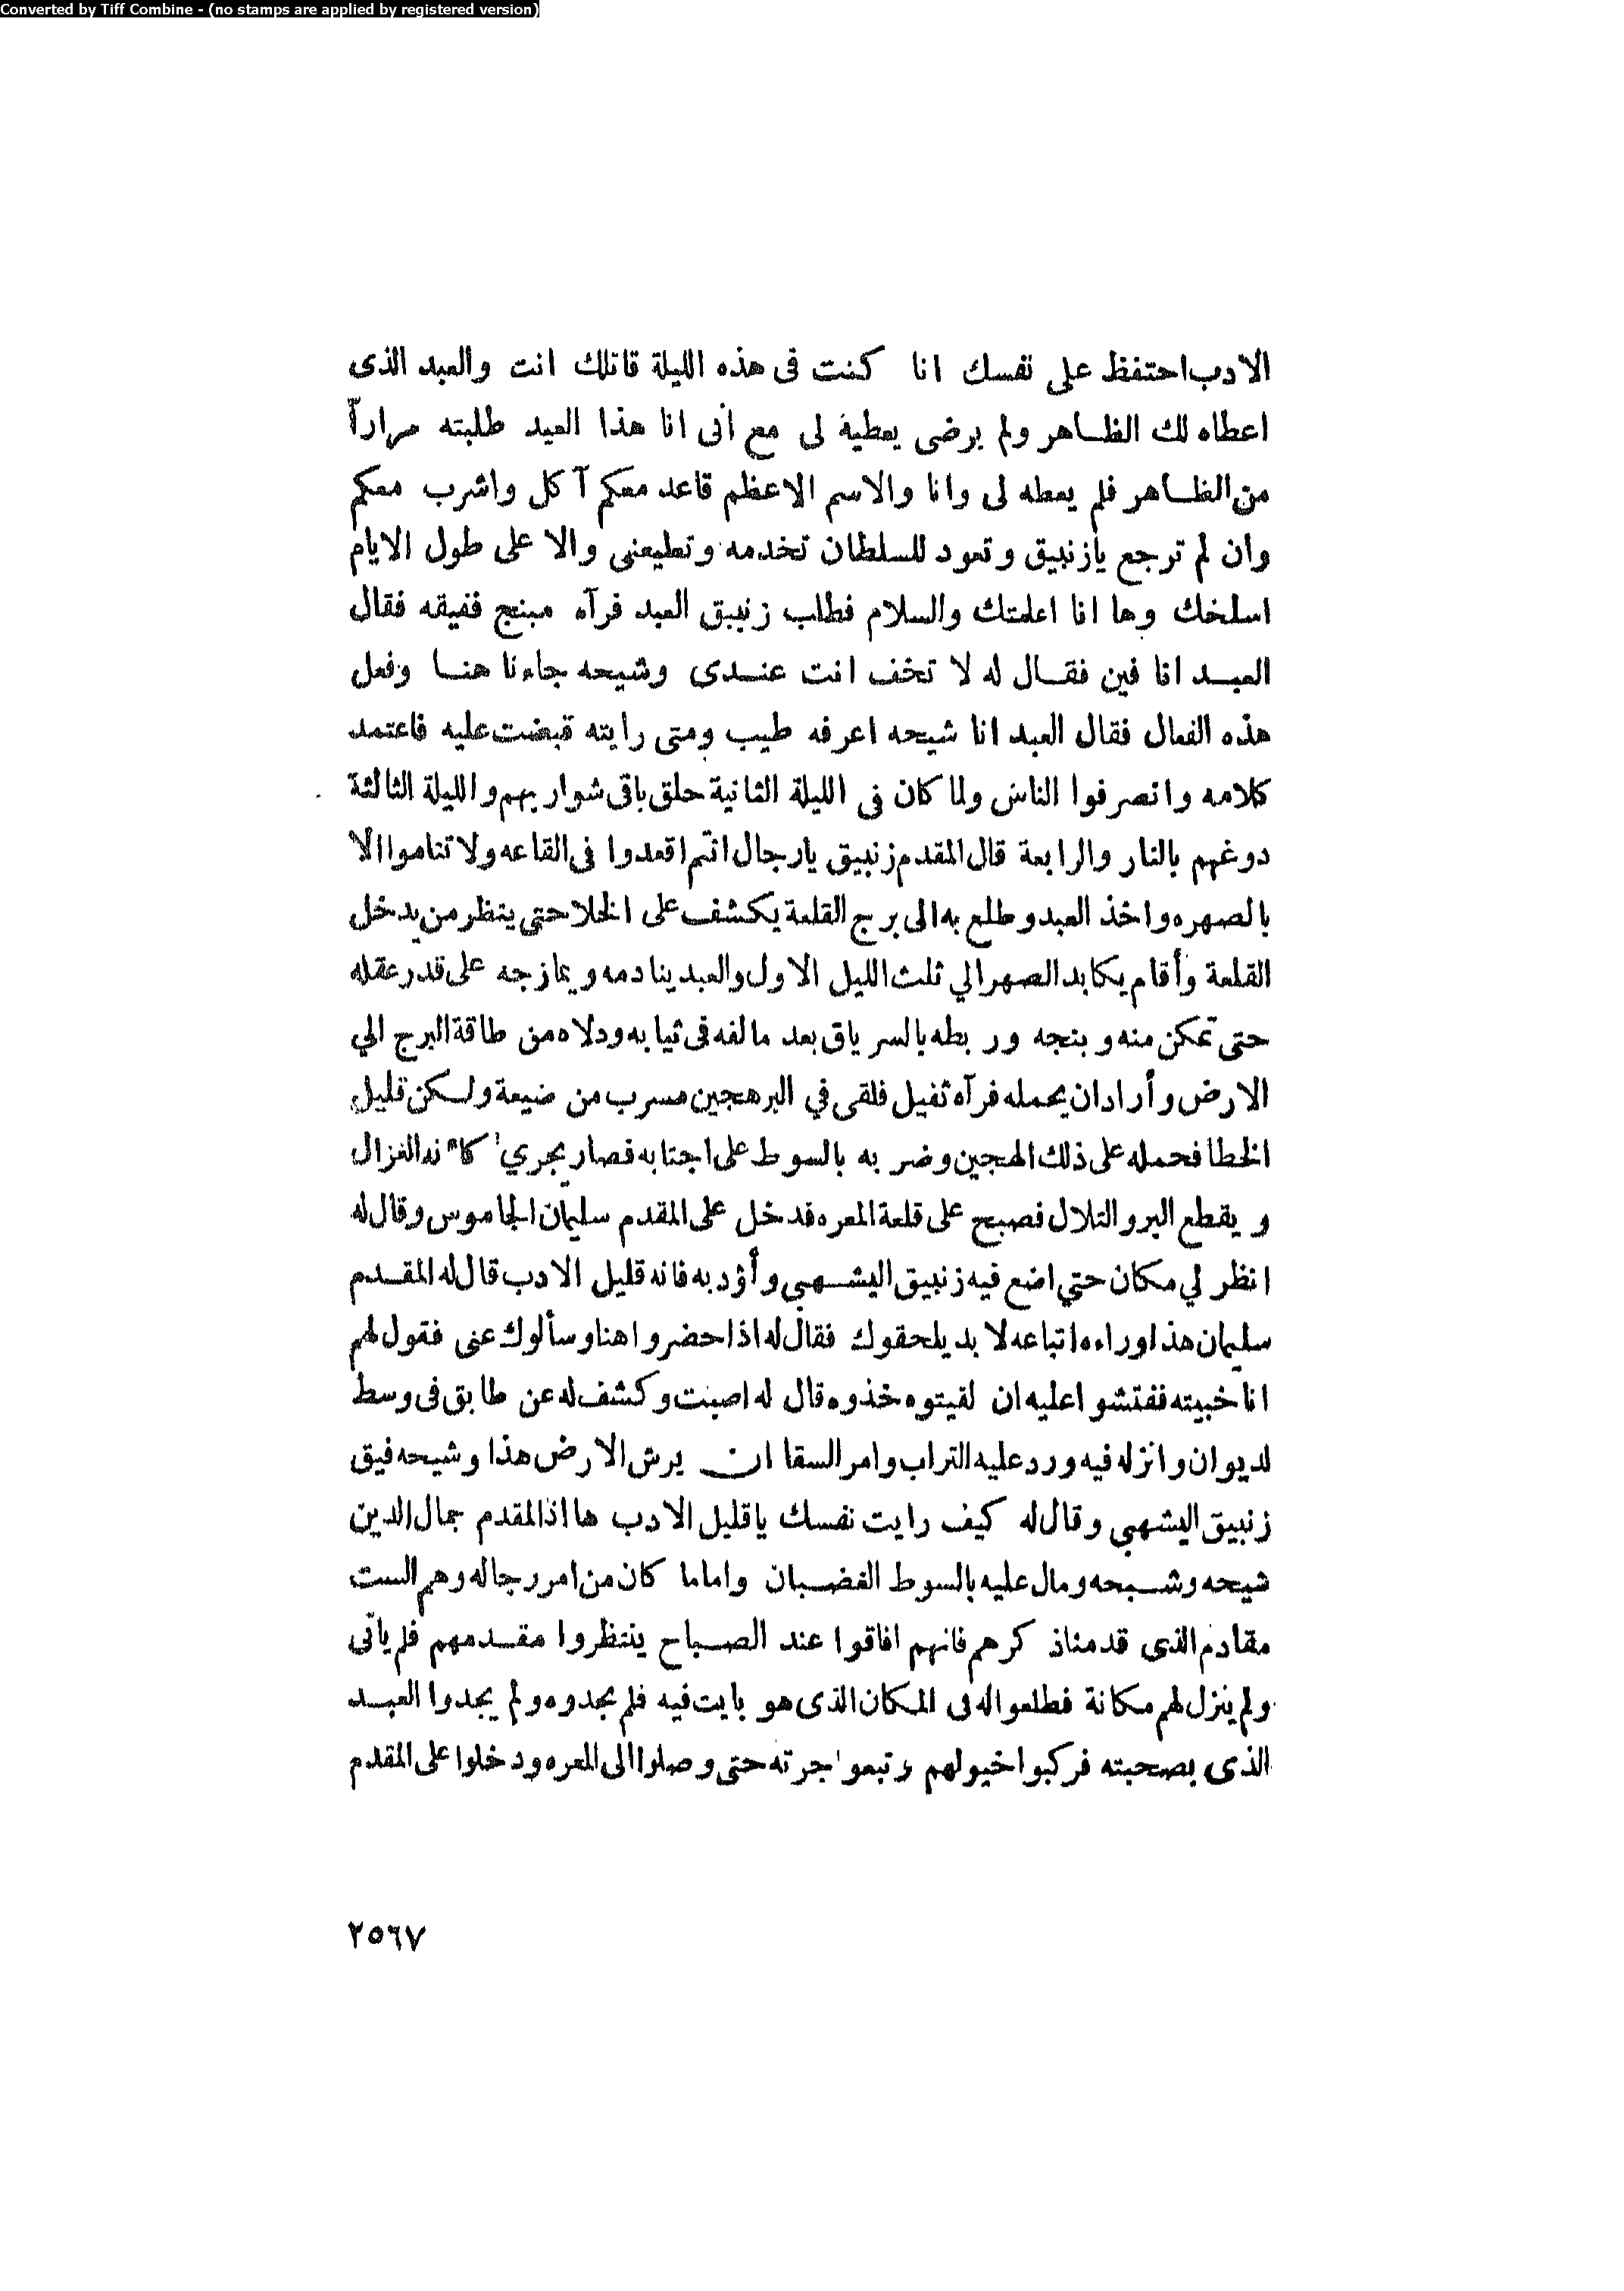 Converted by Tiff Combine - (no stamps are applied by registered version)
الادب احتفظ على نفسك انا كنت فى هذه الليلة قاتلك انت والعبد الذى
اعطاه لك الظاهر ولم يرضى يعطية لى مع أنى انا هذا العبد طلبته مراراً
من الظاهر فلم يعطه لى وانا والاسم الاعظم قاعد معكم آكل واشرب معكم
وان لم ترجع يازنبيق وتعود للسلطان تخدمه وتطيعنى والا على طول الايام
اسلخك وها انا اعلمتك والسلام فطلب زنبيق العبد فرآه مبنج ففيقه فقال
العبد انا فين فقال له لا تخف انت عندى وشيحه جاءنا هنا وفعل
هذه الفعال فقال العبد انا شيحه اعرفه طيب ومتى رايته قبضت عليه فاعتمد
كلامه وانصرفوا الناس ولما كان فى الليلة الثانية حلق باقى شواربهم والليلة الثالثة
دوغهم بالنار والرابعة قال المقدم زنبيق يارجال انتم اقعدوا فى القاعه ولا تناموا الا
بالصهره واخذ العبد وطلع به الى برج القلعة يكشف على الخلا حتى ينظر من يدخل
القلعة وأقام يكابد الصهر الي ثلث الليل الاول والعبد ينادمه ويمازجه على قدر عقله
حتى تمكن منه وبنجه وربطه بالسرياق بعد مالفه فى ثيابه ودلاه من طاقة البرج الي
الارض وأراد ان يحمله فرآه ثفيل فلقى في البر هجين مسرب من ضيعة ولكن قليل
الخطا فحمله على ذلك الهجين وضربه بالسوط على اجتابه فصار يجري كأنه الغزال
ويقطع البر والتلال فصبح على قلعة المعره فدخل على المقدم سليمان الجاموس وقال له
انظر لي مكان حتي اضع فيه زنبيق اليشهبي وأؤدبه فانه قليل الادب قال له المقدم
سليمان هذا وراءه اتباعه لا بد يلحقوك فقال له اذا حضروا هنا وسألوك عنى فقول لهم
انا خبيته ففتشوا عليه ان لقيتوه خذوه قال له اصبت وكشف له عن طابق فى وسط
لديوان وانزله فيه ورد عليه التراب وامر السقا ان يرش الارض هذا وشيحه فيق
زنبيق اليشهبي وقال له كيف رايت نفسك ياقليل الادب ها اذا المقدم جمال الدين
شيحه وشبحه ومال عليه بالسوط الغضبان واما ما كان من امر رجاله وهم الست
مقادم الذى قدمنا ذكرهم فانهم افاقوا عند الصباح ينتظروا مقدمهم فلم يأتى
ولم ينزل لهم مكانة فطلعوا له فى المكان الذى هو بايت فيه فلم يجدوه ولم يجدوا العبد
الذى بصحبته فركبوا خيولهم وتبعوا جرته حتى وصلوا الى المعره ودخلوا على المقدم
٢٥٦٧